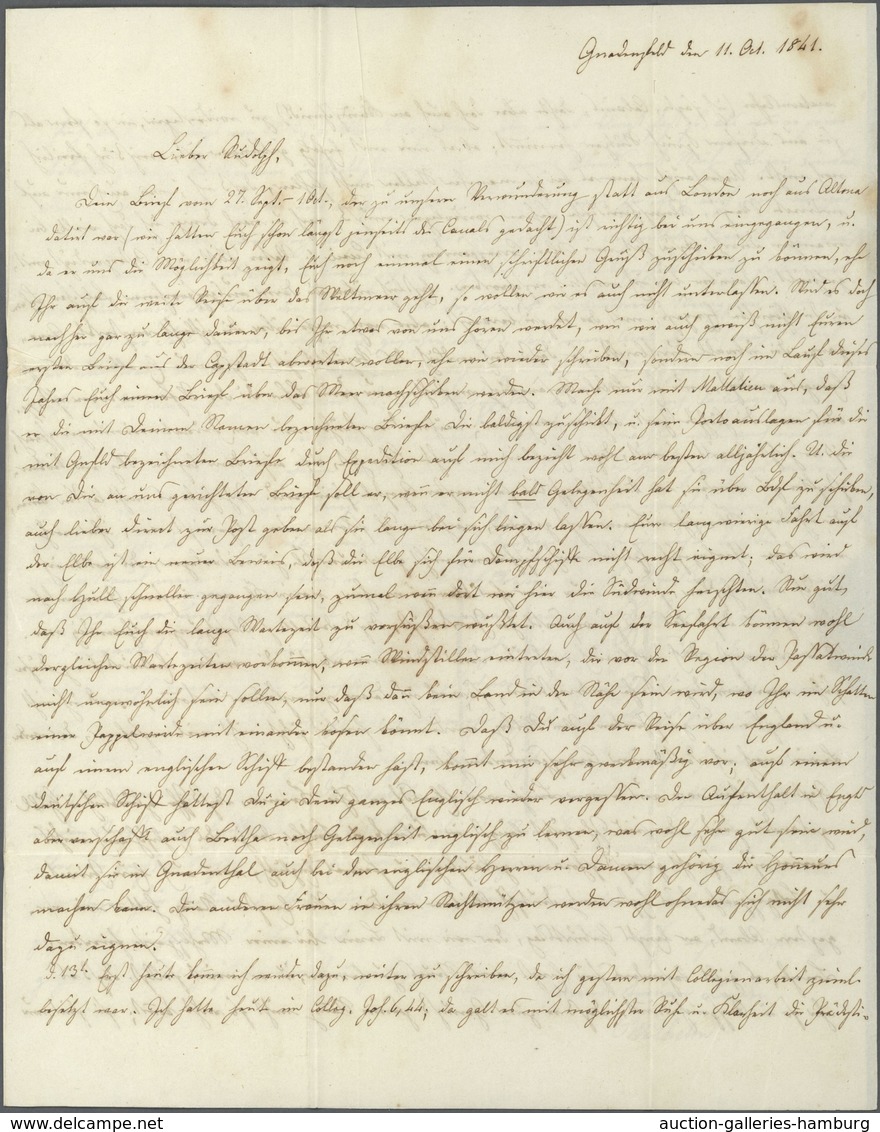 Gnadenfeld den 11. Oct. 1841.
Lieber Rudolph,
Dein Brief vom 27. Sept. – 1 Oct., der zu unserer Verwunderung statt aus London noch aus Altona
datirt war (wir hatten Euch schon längst jenseits des Canals gedacht) ist richtig bei uns eingegangen, u.
da er uns die Möglichkeit zeigt, Euch noch einmal einen schriftlichen Gruß zuzuschicken zu können, ehe
Ihr auf die weite Reise über das Weltmeer geht, so wollen wir es auch nicht unterlassen. Wird es doch
nachher gar zu lange dauern, bis Ihr etwas von uns hören werdet, wenn wir auch gewiß nicht Euren
ersten Brief aus der Capstadt abwarten wollen, ehe wir wieder schreiben, sondern noch im Lauf dieses
Jahres Euch einen Brief über das Meer nachschicken werden. Mache nur mit Mallalieu aus, daß
er die mit Deinem Namen bezeichneten Briefe Dir baldigst zuschickt, u. seine Portoauslagen für die
mit Gnfld bezeichneten Briefe durch Expedition auf mich bezieht wohl am besten alljährlich. U. die
von Dir an uns gerichteten Briefe soll er, wenn er nicht bald Gelegenheit hat sie über Bdf zu schicken,
auch lieber direct zur Post geben als sie lange bei sich liegen lassen. Eure langwierige Fahrt auf
der Elbe ist ein neuer Beweis, daß die Elbe sich für Dampfschiffe nicht recht eignet; das wird
nach Hull schneller gegangen sein, zumal wenn dort wie hier die Südwinde herrschten. Nur gut,
daß Ihr Euch die lange Wartezeit zu versüßen wußtet. Auch auf der Seefahrt können wohl
dergleichen Wartezeiten vorkommen, wenn Windstillen eintreten, die vor der Region der Passatwinde
nicht ungewöhnlich sein sollen, nur daß dann kein Land in der Nähe sein wird, wo Ihr im Schatten
einer Pappelweide mit einander kosen könnt. Daß Du auf der Reise über England u.
auf einem englischen Schiff bestanden hast, kommt mir sehr zweckmäßig vor; auf einem
deutschen Schiff hättest Du ja Dein ganzes Englisch wieder vergessen. Der Aufenthalt in Engld
aber verschafft auch Bertha noch Gelegenheit englisch zu lernen, was wohl sehr gut sein wird,
damit sie in Gnadenthal auch bei den englischen Herren u. Damen gehörig die Honneurs
machen kann. Die anderen Frauen in ihren Nachtmützen werden wohl ohnedas sich nicht sehr
dazu eignen.
d. 13t. Erst heute komme ich wieder dazu, weiter zu schreiben, da ich gestern mit Collegienarbeit ziemlich
besetzt war. Ich hatte heut im Colleg. Joh. 6, 44; da galt es mit möglichster Ruhe u. Klarheit die Prädesti-
www.delcampe.net
auction-galleries-hamburg